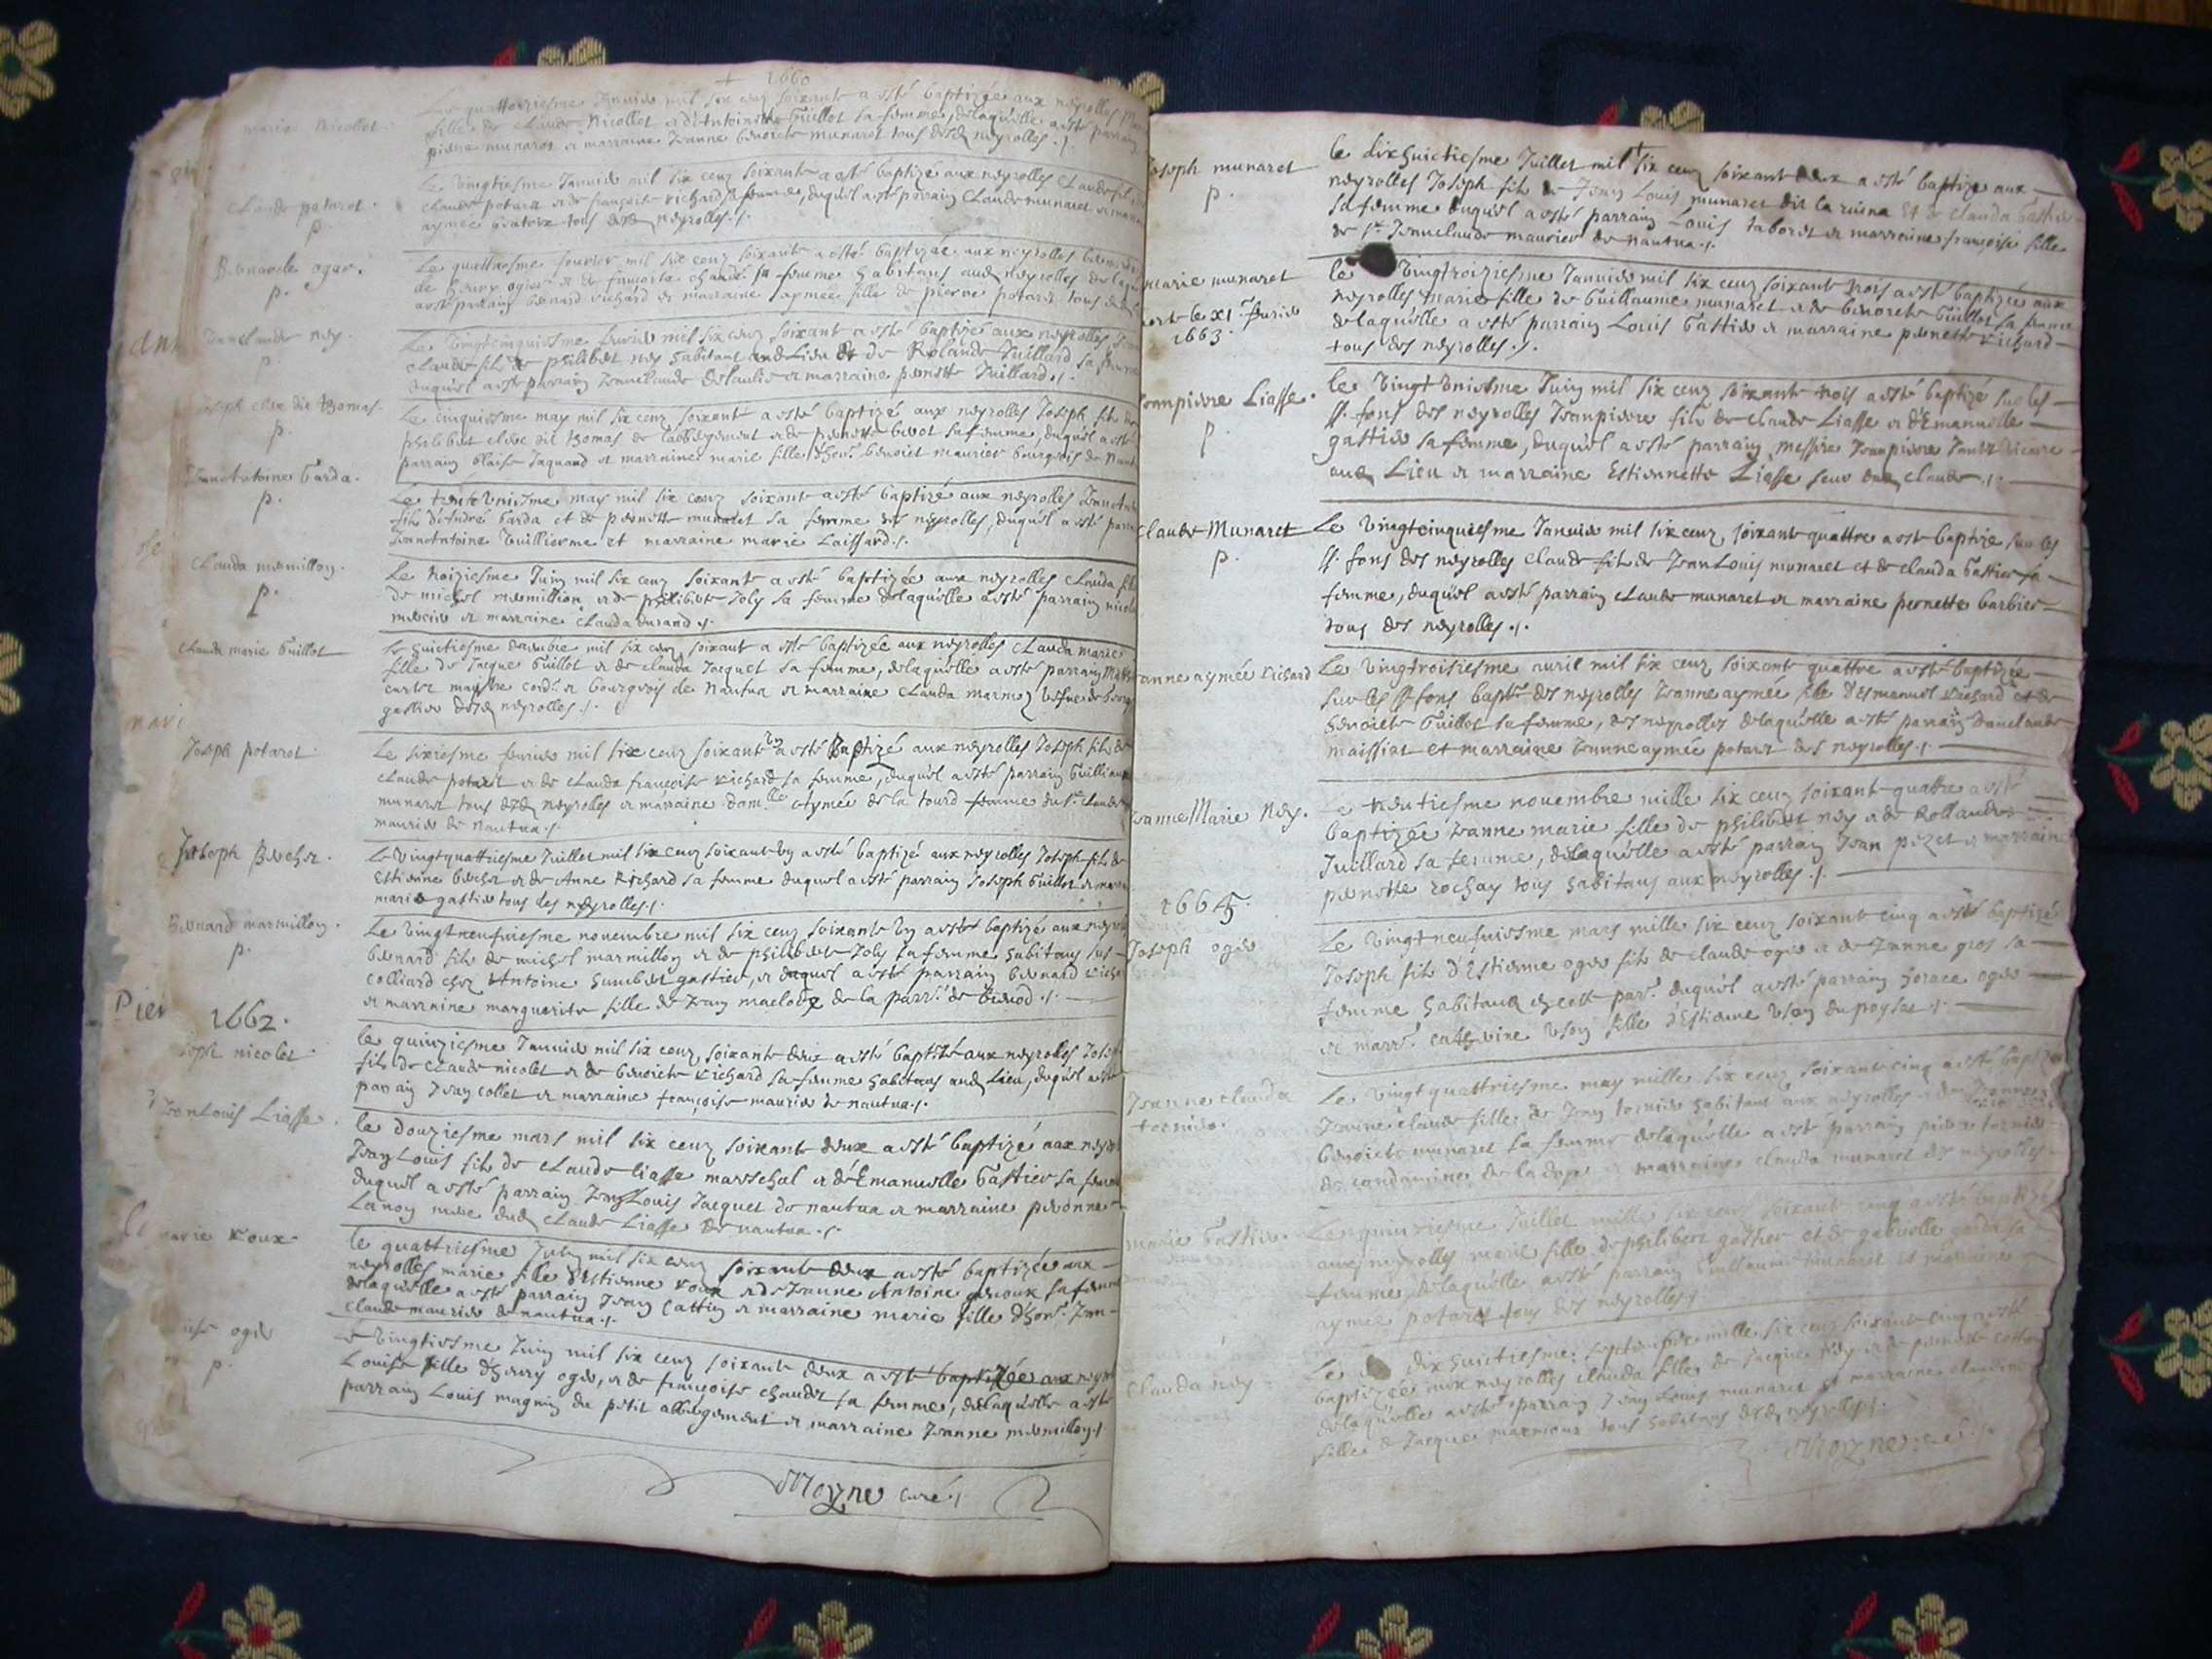 + 1660
marie nicollet.
Le quattorziesme Janvier mil six cens soixant a esté baptizée aux neyrolles
fille de Claude Nicollet et d'Antoinette Guillot sa femme, delaquelle a esté parrain
pierre munaret et marraine Jeanne benoiete munaret tous desd neyrolles ./.
Claude potaret.
p.
Le vingtiesme Janvier mil six cens soixant a esté baptizé aux neyrolles Claude fils
Claude potaret et de françoise richard sa femme, duquel a esté parrain Claude munaret et
aymee tous desd neyrolles ./.
p.
Le quattriesme fevrier mil six cens soixante a esté baptizée aux neyrolles
de ogier et de sa femme habitans aud neyrolles de
a esté parrain benard richard et marraine aymée fille de pierre potaret tous
Janclaude ney.
p.
Le vingtcinquiesme fevrier mil six cens soixant a esté baptizé aux neyrolles
Claude fils de philibert ney habitant aud Lieu et de Rolande Juillard sa femme
duquel a esté parrain Jeanclaude et marraine pernette Juillard ./.
dit thomas.
p.
Le cinquiesme may mil six cens soixant a esté baptizé aux neyrolles Joseph fils de
philibert dit thomas de et de pernette sa femme, duquel a esté
parrain blaise Jaquand et marraine marie fille benoiet maurier bourgeois de
Janantoine Garda.
p.
Le trentevniesme may mil six cens soixant a esté baptizé aux neyrolles
fils d'André Garda et de pernette munaret sa femme des neyrolles, duquel a esté
Janantoine Vuillierme et marraine marie Laissard ./.
Clauda mermillon.
p.
Le troiziesme Juin mil six cens soixant a esté baptizée aux neyrolles Clauda
de michel mermillion et de philiberte Joly sa femme delaquelle a esté parrain
et marraine Clauda durand ./.
Clauda marie Guillot
Le huictiesme mil six cens soixant a esté baptizée aux neyrolles Clauda marie
fille de Jacque Guillot et de clauda Jacquet sa femme, delaquelle a esté parrain
maistre et bourgeois de Nantua et marraine Clauda
gastier desd neyrolles ./.
Joseph potaret
Le sixiesme fevrier mil six cens soixant vn a esté baptizé aux neyrolles Joseph fils de
Claude potaret et de Claude françoise richard sa femme, duquel a esté parrain
munaret tous desd neyrolles et marraine Aymée de la tourd femme du
maurier de nantua ./.
Joseph Bercher.
Le vingtquattriesme Juillet mil six cens soixant vn a esté baptizé aux neyrolles Joseph fils de
Estienne bercher et de Anne Richard sa femme duquel a esté parrain Joseph Guillot et
marie gastier tous des neyrolles ./.
Bernard marmillon.
p.
Le vingtneufuiesme novembre mil six cens soixante vn a esté baptizé aux
bernard fils de michel marmillon et de philiberte Joly sa femme habitans
colliard chez Antoine humbert gastier, et duquel a esté parrain bernard
et marraine marguerite fille de Jean de la parr. de ./.
1662.
nicolet.
le quinziesme Janvier mil six cens soixante deux a esté baptizé aux neyrolles
fils de Claude nicolet et de benoicte richard sa femme habitans aud Lieu, duquel a esté
parrain Jean collet et marraine françoise maurier de nantua ./.
Jean Louis Liasse.
le douziesme mars mil six cens soixante deux a esté baptizé aux
Jean Louis fils de Claude liasse mareschal et d'Emanuelle Gastier sa
duquel a esté parrain Jean Louis Jacquet de nantua et marraine pernonne
Lanoy mere dud Claude Liasse de nantua ./.
marie roux
le quattriesme mil six cens soixante deux a esté baptizée aux
neyrolles marie fille d'Estienne roux et de Jeanne Antoine sa
delaquelle a esté parrain Jean et marraine marie fille
Claude maurier de nantua ./.
ogier
p.
Le vingtiesme Juin mil six cens soixante deux a esté baptizée aux
Louise fille d'henry ogier, et de françoise sa femme, delaquelle a esté
parrain Louis magnin du petit abbergement et marraine Jeanne mermillon ./.
Moyne curé ./.
Joseph munaret
p.
le dixhuictiesme Juillet mil six cens soixant deux a esté baptizé aux
neyrolles Joseph fils de Jean Louis munaret dit la ruina Et de clauda Gastier
sa femme duquel a esté parrain Louis taboret et marraine françoise fille
de Sr Jeanclaude maurier de nantua ./.
marie munaret
1663
le vingtroiziesme Janvier mil six cens soixant trois a esté baptizée aux
neyrolles marie fille de Guillaume munaret et de benoiete Guillot sa femme
delaquelle a esté parrain Louis Gastier et marraine pernette richard
tous des neyrolles ./.
Jeanpierre Liasse.
p.
le vingt vniesme Juin mil six cens soixant trois a esté baptizé sur les
fons des neyrolles Jeanpierre fils de claude Liasse et d'Emanuelle
gastier sa femme, duquel a esté parrain messire Jeanpierre vicaire
aud Lieu et marraine Estiennette Liasse seur dud claude ./.
Claude Munaret
p.
Le vingtcinquiesme Janvier mil six cens soixant quattre a esté baptizé sur les
fons des neyrolles Claude fils de Jean Louis munaret et de clauda Gastier sa
femme, duquel a esté parrain claude munaret et marraine pernette barbier
tous des neyrolles ./.
Jeanne aymée richard
Le vingtroisiesme avril mil six cens soixant quattre a esté baptizée
sur les fons des neyrolles Jeanne aymée fille d'Emanuel richard et de
benoiete Guillot sa femme, des neyrolles delaquelle a esté parrain Jeanclaude
maissiat et marraine Jeanne aymée potaret des neyrolles ./.
Jeanne Marie Ney.
Le trentiesme novembre mille six cens soixant quattre a esté
baptizée Jeanne marie fille de philibert ney et de Rollande
Juillard sa femme, delaquelle a esté parrain Jean pezet et marraine
pernette rochay tous habitans aux neyrolles ./.
1665.
Joseph ogier
Le vingtneufuiesme mars mille six cens soixante cinq a esté baptizé
Joseph fils d'Estienne ogier fils de claude ogier et de Jeanne gros sa
femme habitans en cest par. duquel a esté parrain horace ogier
et marr. fille d'Estienne ./.
Jeanne Clauda
tornier.
Le vingtquattriesme may mille six cens soixante cinq a esté baptizée
Jeanne claude fille de Jean tornier habitant aux neyrolles et de
benoiete munaret sa femme delaquelle a esté parrain pierre tornier
de condamine de la et marraine clauda munaret des neyrolles
marie Gastier.
Le quinziesme Juillet mille six cens soixante cinq a esté baptizée
aux neyrolles marie fille de philibert gastier et de gabrielle garda sa
femme, delaquelle a esté parrain Guillaume munaret et marraine
aymée potaret tous des neyrolles ./.
Clauda ney
Le dixhuictiesme septembre mille six cens soixante cinq a esté
baptizée aux neyrolles clauda fille de Jacque ney et de pernette
delaquelle a esté parrain Jean Louis munaret et marraine claudine
fille de Jacque tous habitans desd neyrolles ./.
Moyne curé ./.